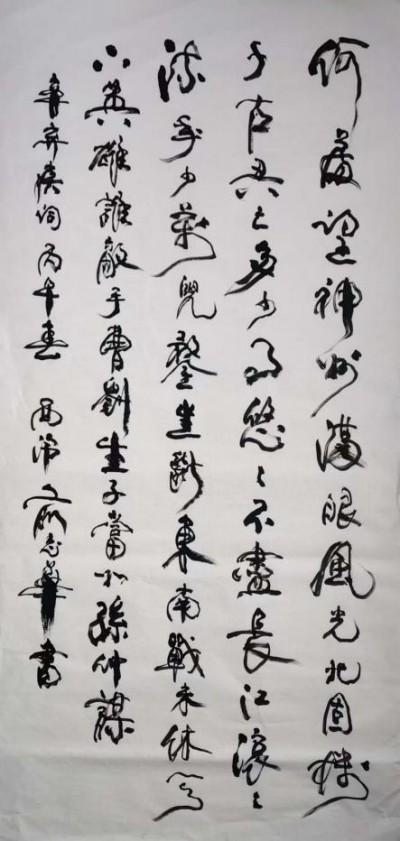 何處望神州滿眼風光北固樓
千古興亡多少事悠〻不盡長江滾〻
流年少萬兜鍪坐斷東南戰未休天
下英雄誰敵手曹劉生子當如孫仲謀
辛弃疾詞 丙午春 書